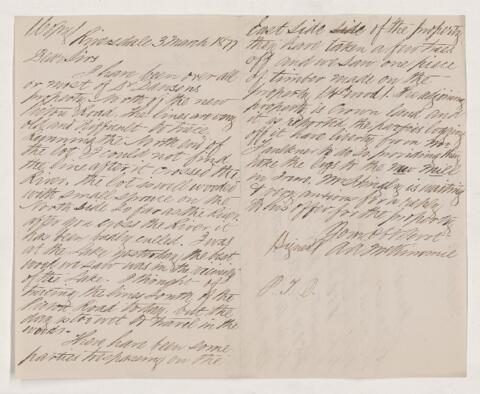 (Copy)
Riversdale 3 March 1877
Dear Sirs
I have been over all
or most of Dr Dawsons
property North of the new
Road, the lines are very
old and difficult to trace,
running the North line of
the lot I could not find
the line after it crossed the
River. the lot is well wooded
with Small Spruce on the
North side so far as the River
after you cross the River, it
has been badly culled. I was
at the Lake yesterday, the best
wood we saw was in the vicinity
of the Lake. I thought of
the lines South of the
Road today, but the
day is too wet to travel in the
woods.
There have been some
parties trespassing on the
East Side side of the property
they have taken a few trees
off and we saw one piece
of timber made on the
property. The adjoining
property is Crown land and
it is reported the parties logging
off it have liberty from Mr
Faulkner to do so providing they
have the logs at the new mill
in . Mr is waiting
very anxious for a reply
to his offer for the property
Your Obt Servt
Signed
P. T. O.